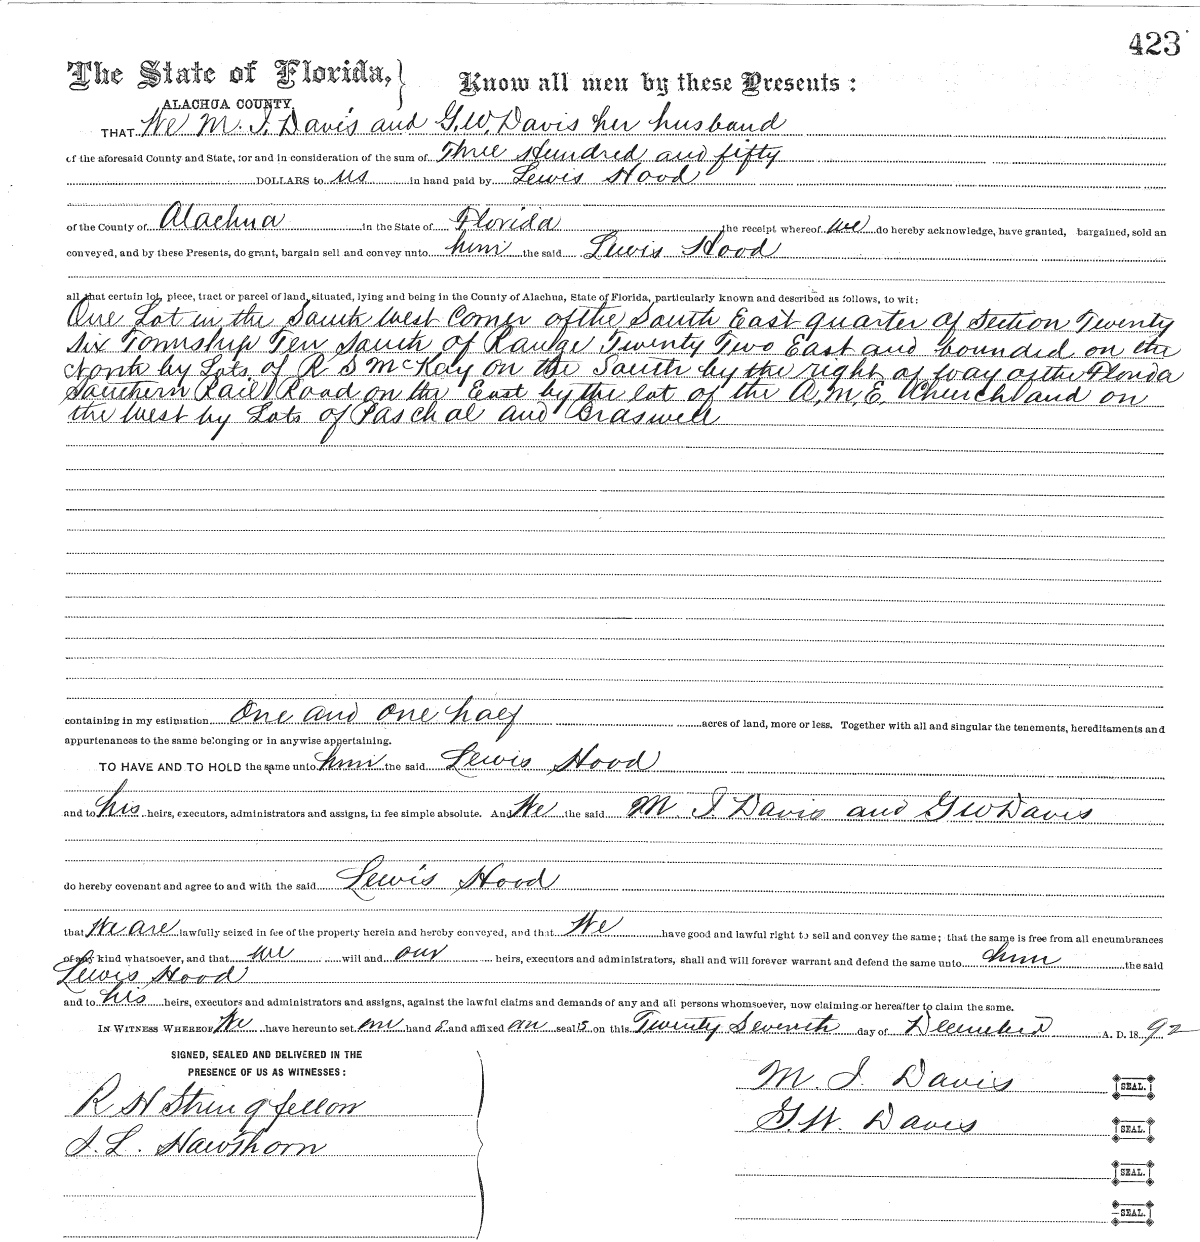 423
The State of Florida, } Know all men by these Presents:
ALACHUA COUNTY.
THAT We M. J. Davis and G. W. Davis her husband
of the aforesaid County and State, for and in consideration of the sum of Three Hundred and fifty
DOLLARS to us in hand paid by Lewis Hood
of the County of Alachua in the State of Florida the receipt whereof we do hereby acknowledge, have granted, bargained, sold an
conveyed, and by these Presents, do grant, bargain sell and convey unto him the said Lewis Hood
all that certain lot, piece, tract or parcel of land, situated, lying and being in the County of Alachua, State of Florida, particularly known and described as follows, to wit:
One Lot in the South West Corner of the South East quarter of Section Twenty
Six Township Ten South of Range Twenty Two East and bounded on the
North by Lots of R S McKay on the South by the right of way of the Florida
Southern Rail Road on the East by the lot of the A. M. E. Church and on
the West by Lots of Paschal and Braswell
containing in my estimation One and one half acres of land, more or less. Together with all and singular the tenements, hereditaments and
appurtenances to the same belonging or in anywise appertaining.
TO HAVE AND TO HOLD the same unto him the said Lewis Hood
and to his heirs, executors, administrators and assigns, in fee simple absolute. And We the said M. J. Davis and G W Davis
do hereby covenant and agree to and with the said Lewis Hood
that We are lawfully seized in fee of the property herein and hereby conveyed, and that We have good and lawful right to sell and convey the same; that the same is free from all encumbrances
of any kind whatsoever, and that we will and our heirs, executors and administrators, shall and will forever warrant and defend the same unto him the said
Lewis Hood
and to his heirs, executors and administrators and assigns, against the lawful claims and demands of any and all persons whomsoever, now claiming or hereafter to claim the same.
IN WITNESS WHEREOF We have hereunto set our hand s and affixed our seal s on this Twenty Seventh day of December A. D. 18 92
SIGNED, SEALED AND DELIVERED IN THE
PRESENCE OF US AS WITNESSES:
M. J. Davis SEAL.
R H Stringfellow
G. W. Davis SEAL.
J. L. Hawthorn
SEAL.
SEAL.